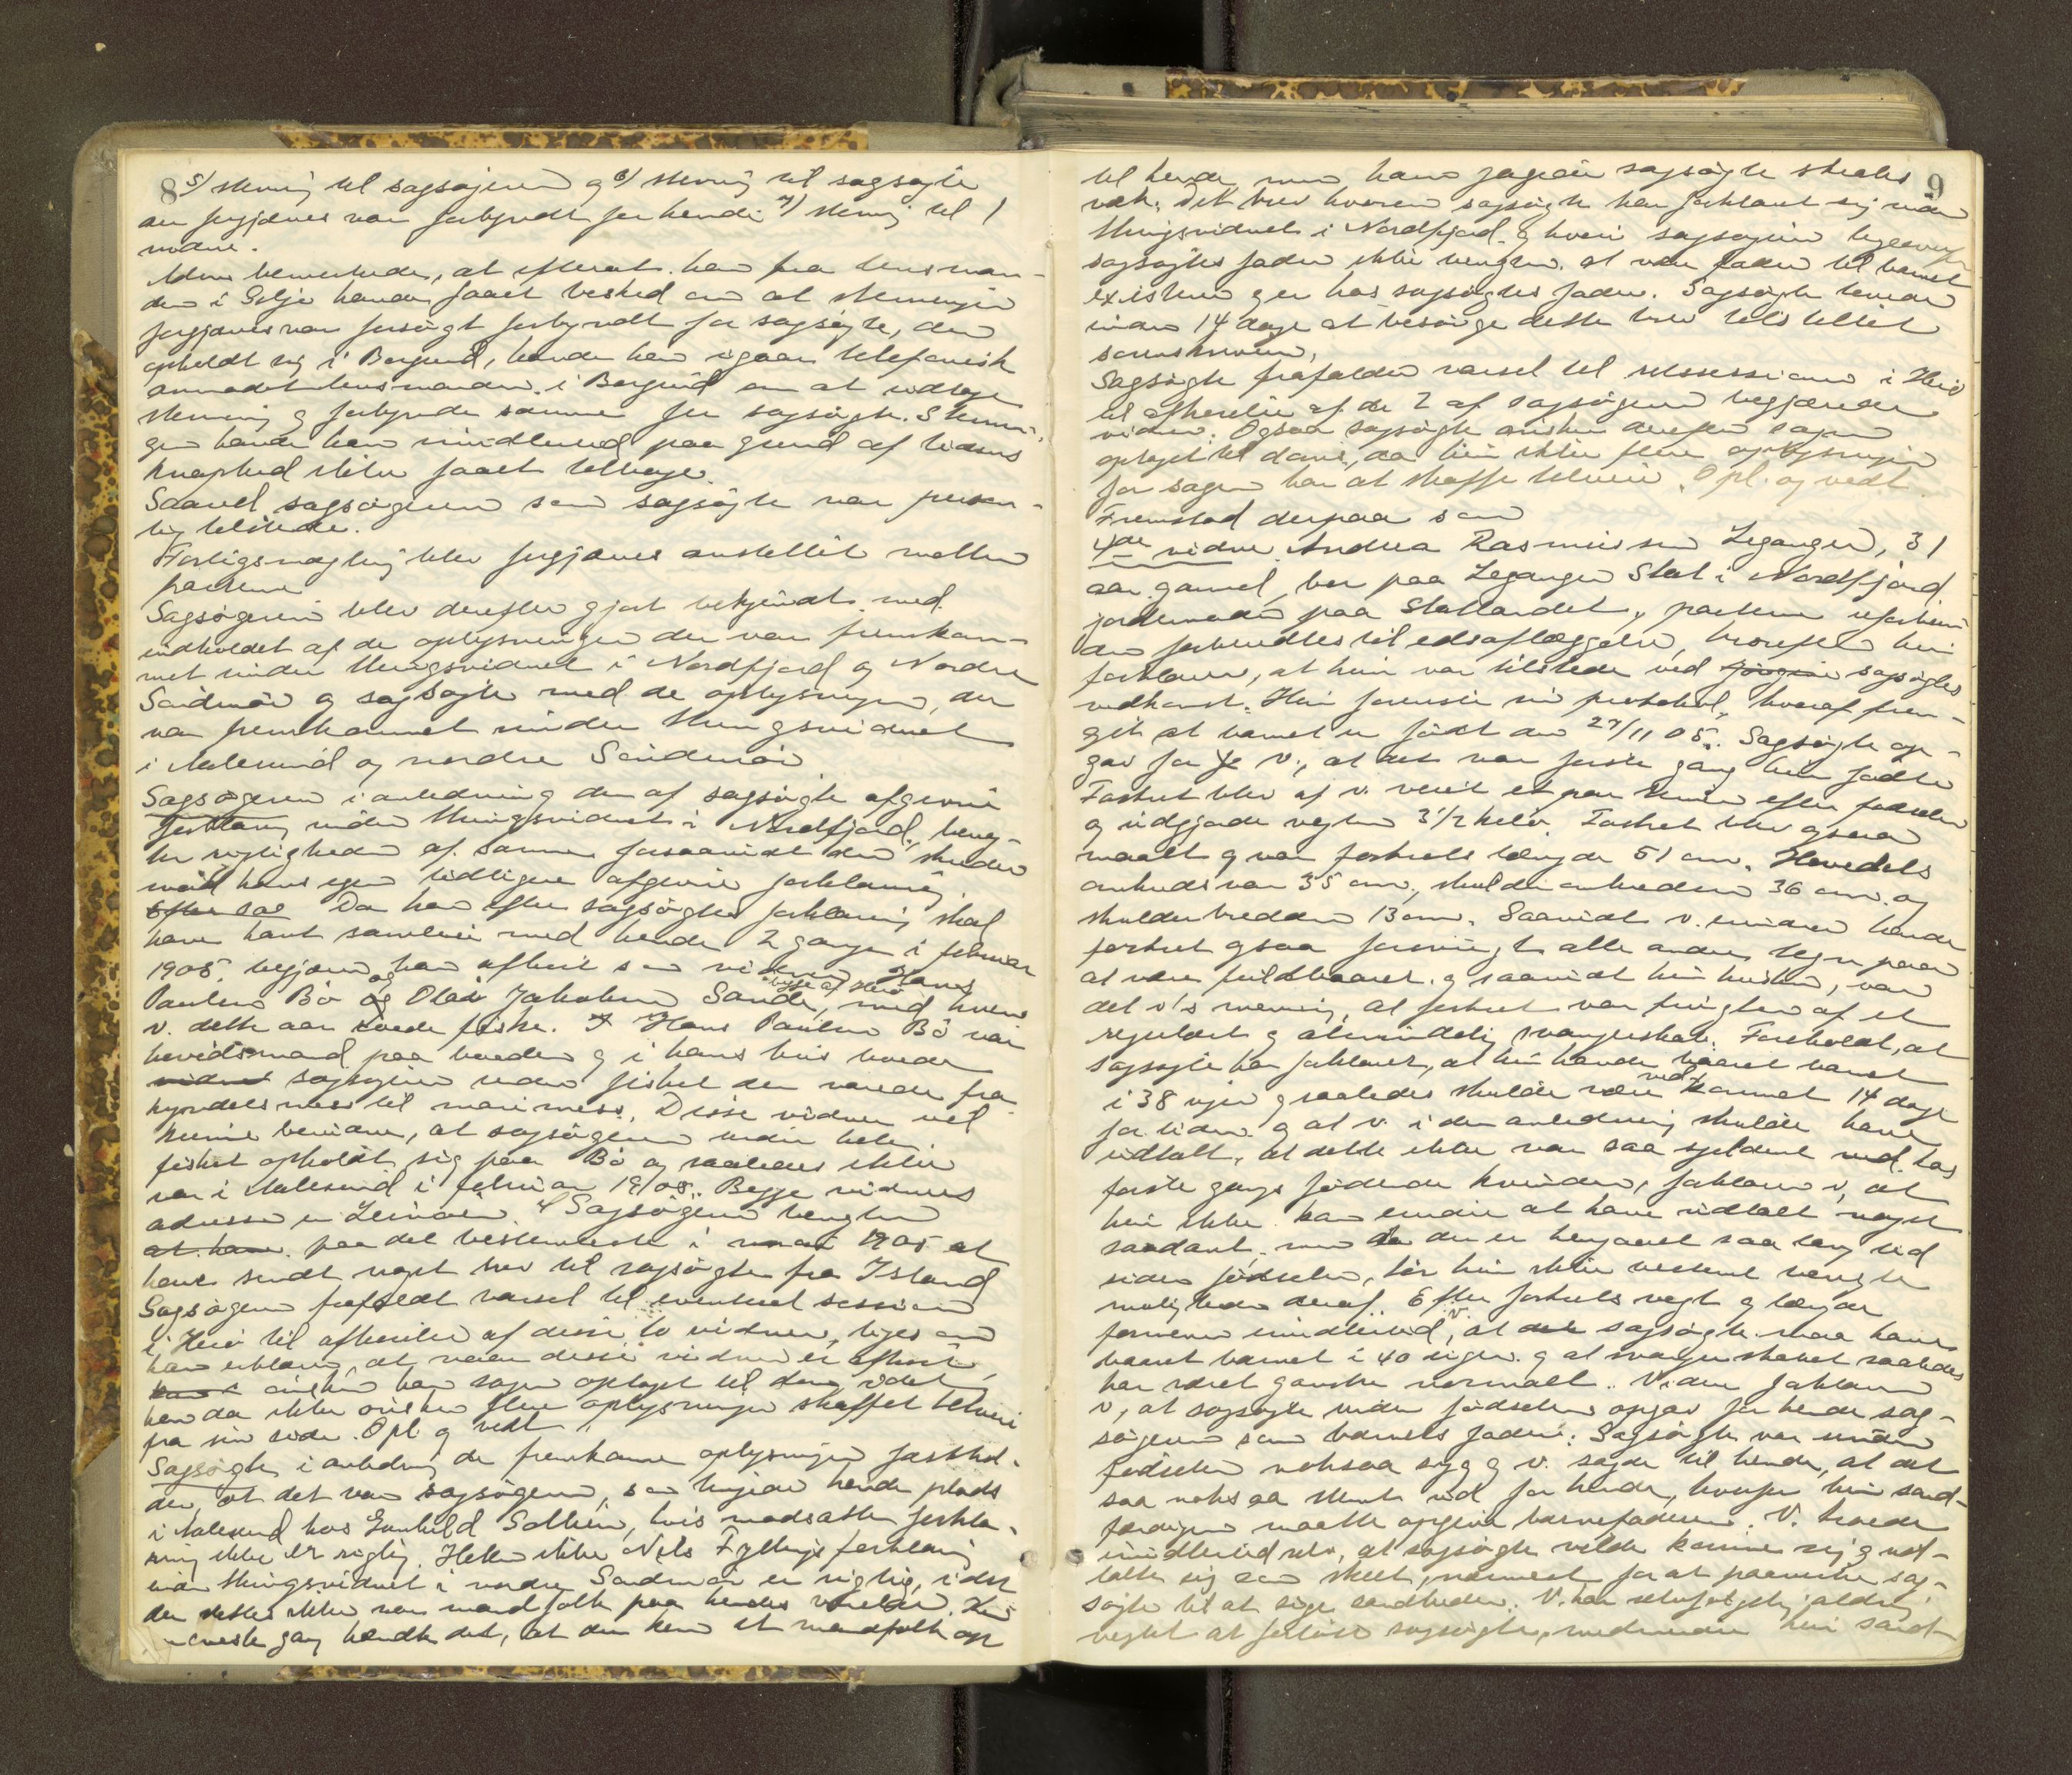 8
5/ stevning til sagsøgeren og 6/ stevning til sagsøgte
der forgjæves var forkyndt for hende 7/ stevning til 1
vidne.
Adm. bemerkede, at efterat han fra lensman-
den i Selje havde faaet besked om at stevningen
forgjæves var forsøgt forkyndt for sagsøgte, der
opholdt sig i Borgund, havde han igaar telefonisk
anmodet lensmanden i Borgund om at udtage
stevning og forkynde samme for sagsøgte. Stevnin-
gen havde han imidlertid paa grund af tidens
knaphed ikke faaet tilbage.
Saavel sagsøgeren som sagsøgte var person-
lig tilstede.
Forligsmægling blev forgjæves anstillet mellem
parterne
Sagsøgeren blev derefter gjort bekjendt med
indholdet af de oplysninger der var fremkom-
met under thingsvidnet i Nordfjord og Nordre
Søndmør og sagsøgte med de oplysninger, der
var fremkommet under thingsvidnet
i Aalesund og nordre Søndmør
Sagsøgeren i anledning den af sagsøgte afgivne
forklaring under thingsvidnet i Nordfjord, beneg-
ter rigtigheden af samme forsaavidt den strider
mod hans egen tidligere afgivne forklaring.
Efter sag Da han efter sagsøgtes forklaring skal
have havt samleie med hende 2 gange i februar
1905. begjærer han afhørt som vidner Hans
Paulsen Bø og Olai Jakobsen Sande, begge af Herø med hvem
v. dette aar roede fiske. Hans Paulsen Bø var
høvedsmand paa baaden og i hans hus boede
vidnet sagsøgeren under fisket der varede fra
kyndelsmess til marimess. Disse vidner vil
kunne bevidne, at sagsøgeren under hele
fisket opholdt sig paa Bø og saaledes ikke
var i Aalesund i februar 1905. Begge vidners
adresse er Leinøen. Sagsøgeren benegter
at have paa det bestemteste i mai 1905 at
have sendt noget brev til sagsøgte fra Island
Sagsøgeren frafaldt varsel til eventuel session
i Herø til afhørelse af disse to vidner, liges om
han erklærer, at naar disse vidner er afhørt,
ønsker han sagen optaget til dom, idet
han da ikke ønsker flere oplysninger skaffet tilveie
fra sin side. Opl. og vedt.
Sagsøgte i anledning de fremkomne oplysninger fasthol-
der, at det var sagsøgeren, som hyrede hende plads
i Aalesund hos Gunhild Solheim, hvis modsatte forkla-
ring ikke er rigtig. Heller ikke Nils Fyllings forklaring
under thingsvidnet i nordre Søndmør er rigtig, idet
der ikke var mandfolk paa hendes værelse. Kun
eneste gang hændte det, at der kom et mandfolk op
9
til hende men ham jagede sagsøgte straks
væk. Det brev hvorom sagsøgte har forklaret sig under
thingsvidnet i Nordfjord og hvori sagsøgeren ligeoverfor
sagsøgtes fader ikke benegter at være fader til barnet
existerer og er hos sagsøgtes fader. Sagsøgte lovede
inden 14 dage at besørge dette brev tilstillet
sorenskriveren.
Sagsøgte frafalder varsel til retssessionen i Herø
til afhørelse af de 2 af sagsøgeren begjærede
vidner. Ogsaa sagsøgte ønsker derefter sagen
optaget til doms, da hun ikke flere oplysninger
for sagen har at skaffe tilveie. Opl. og vedt.
Fremstod derpaa som
4de vidne Andrea Rasmussen Leganger, 31
aar gammel, bor paa Leganger Stat i Nordfjord
jordemoder paa Statlandet, parterne uforbun-
den forberedtes til edsaflæggelse, hvorefter hun
forklarer, at hun var tilstede ved sagsøgtes
nedkomst. Hun foreviste sin protokol, hvoraf frem-
gik at barnet er født den 27/11 05. Sagsøgte op-
gav for v., at det var første gang hun fødte
Fostret blev af v. veiet et par timer efter fødselen
og udgjorde vegten 3 1/2 kilo. Fostret blev ogsaa
maalt og var fostrets længde 51 cm. Hovedets
omkreds var 35 cm., skulder omkredsen 36 cm. og
skulderbredden 13 cm. Saavidt v. erindrer havde
fostret ogsaa forøvrigt alle andre tegn paa
at være fuldbaaret og saavidt hun husker, var
det v's mening, at fostret var frugten af et
regulært og almindelig svangerskab. Foreholdt, at
sagsøgte har forklaret, at hun havde baaret barnet
i 38 uger og saaledes skulde være ned kommet 14 dage
før tiden og at v. i den anledning skulde have
udtalt, at dette ikke var saa sjeldent ved hos
første gangs fødende kvinder, forklarer v, at
hun ikke kan erindre at have udtalt noget
saadant, men da der er hengaaet saa lang tid
siden fødselen, tør hun ikke bestemt negte
muligheden deraf. Efter fostrets vegt og længde
formener imidlertid v, at sagsøgte maa have
baaret barnet i 40 uger og at svangerskabet saaledes
har været ganske normalt. Videre forklarer
v, at sagsøgte under fødselen opgav for hende sag-
søgeren som barnets fader. Sagsøgte var under
fødselen noksaa syg og v. sagde til hende, at det
saa noksaa sterkt ud for hende, hvorfor hun sand-
færdigen maatte opgive barnefaderen. V. troede
imidlertid selv, at sagsøgte vilde komme sig og ud-
talte sig som skeet, nærmest for at paavirke sag-
søgte til at sige sandheden. V. har selvfølgelig aldrig
negtet at forløse sagsøgte, medmindre hun sand-